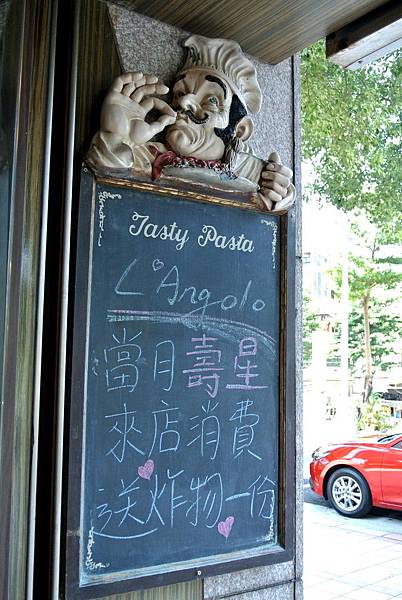 Tasty Pasta
L'Angolo
當月壽星
來店消費
送炸物一份